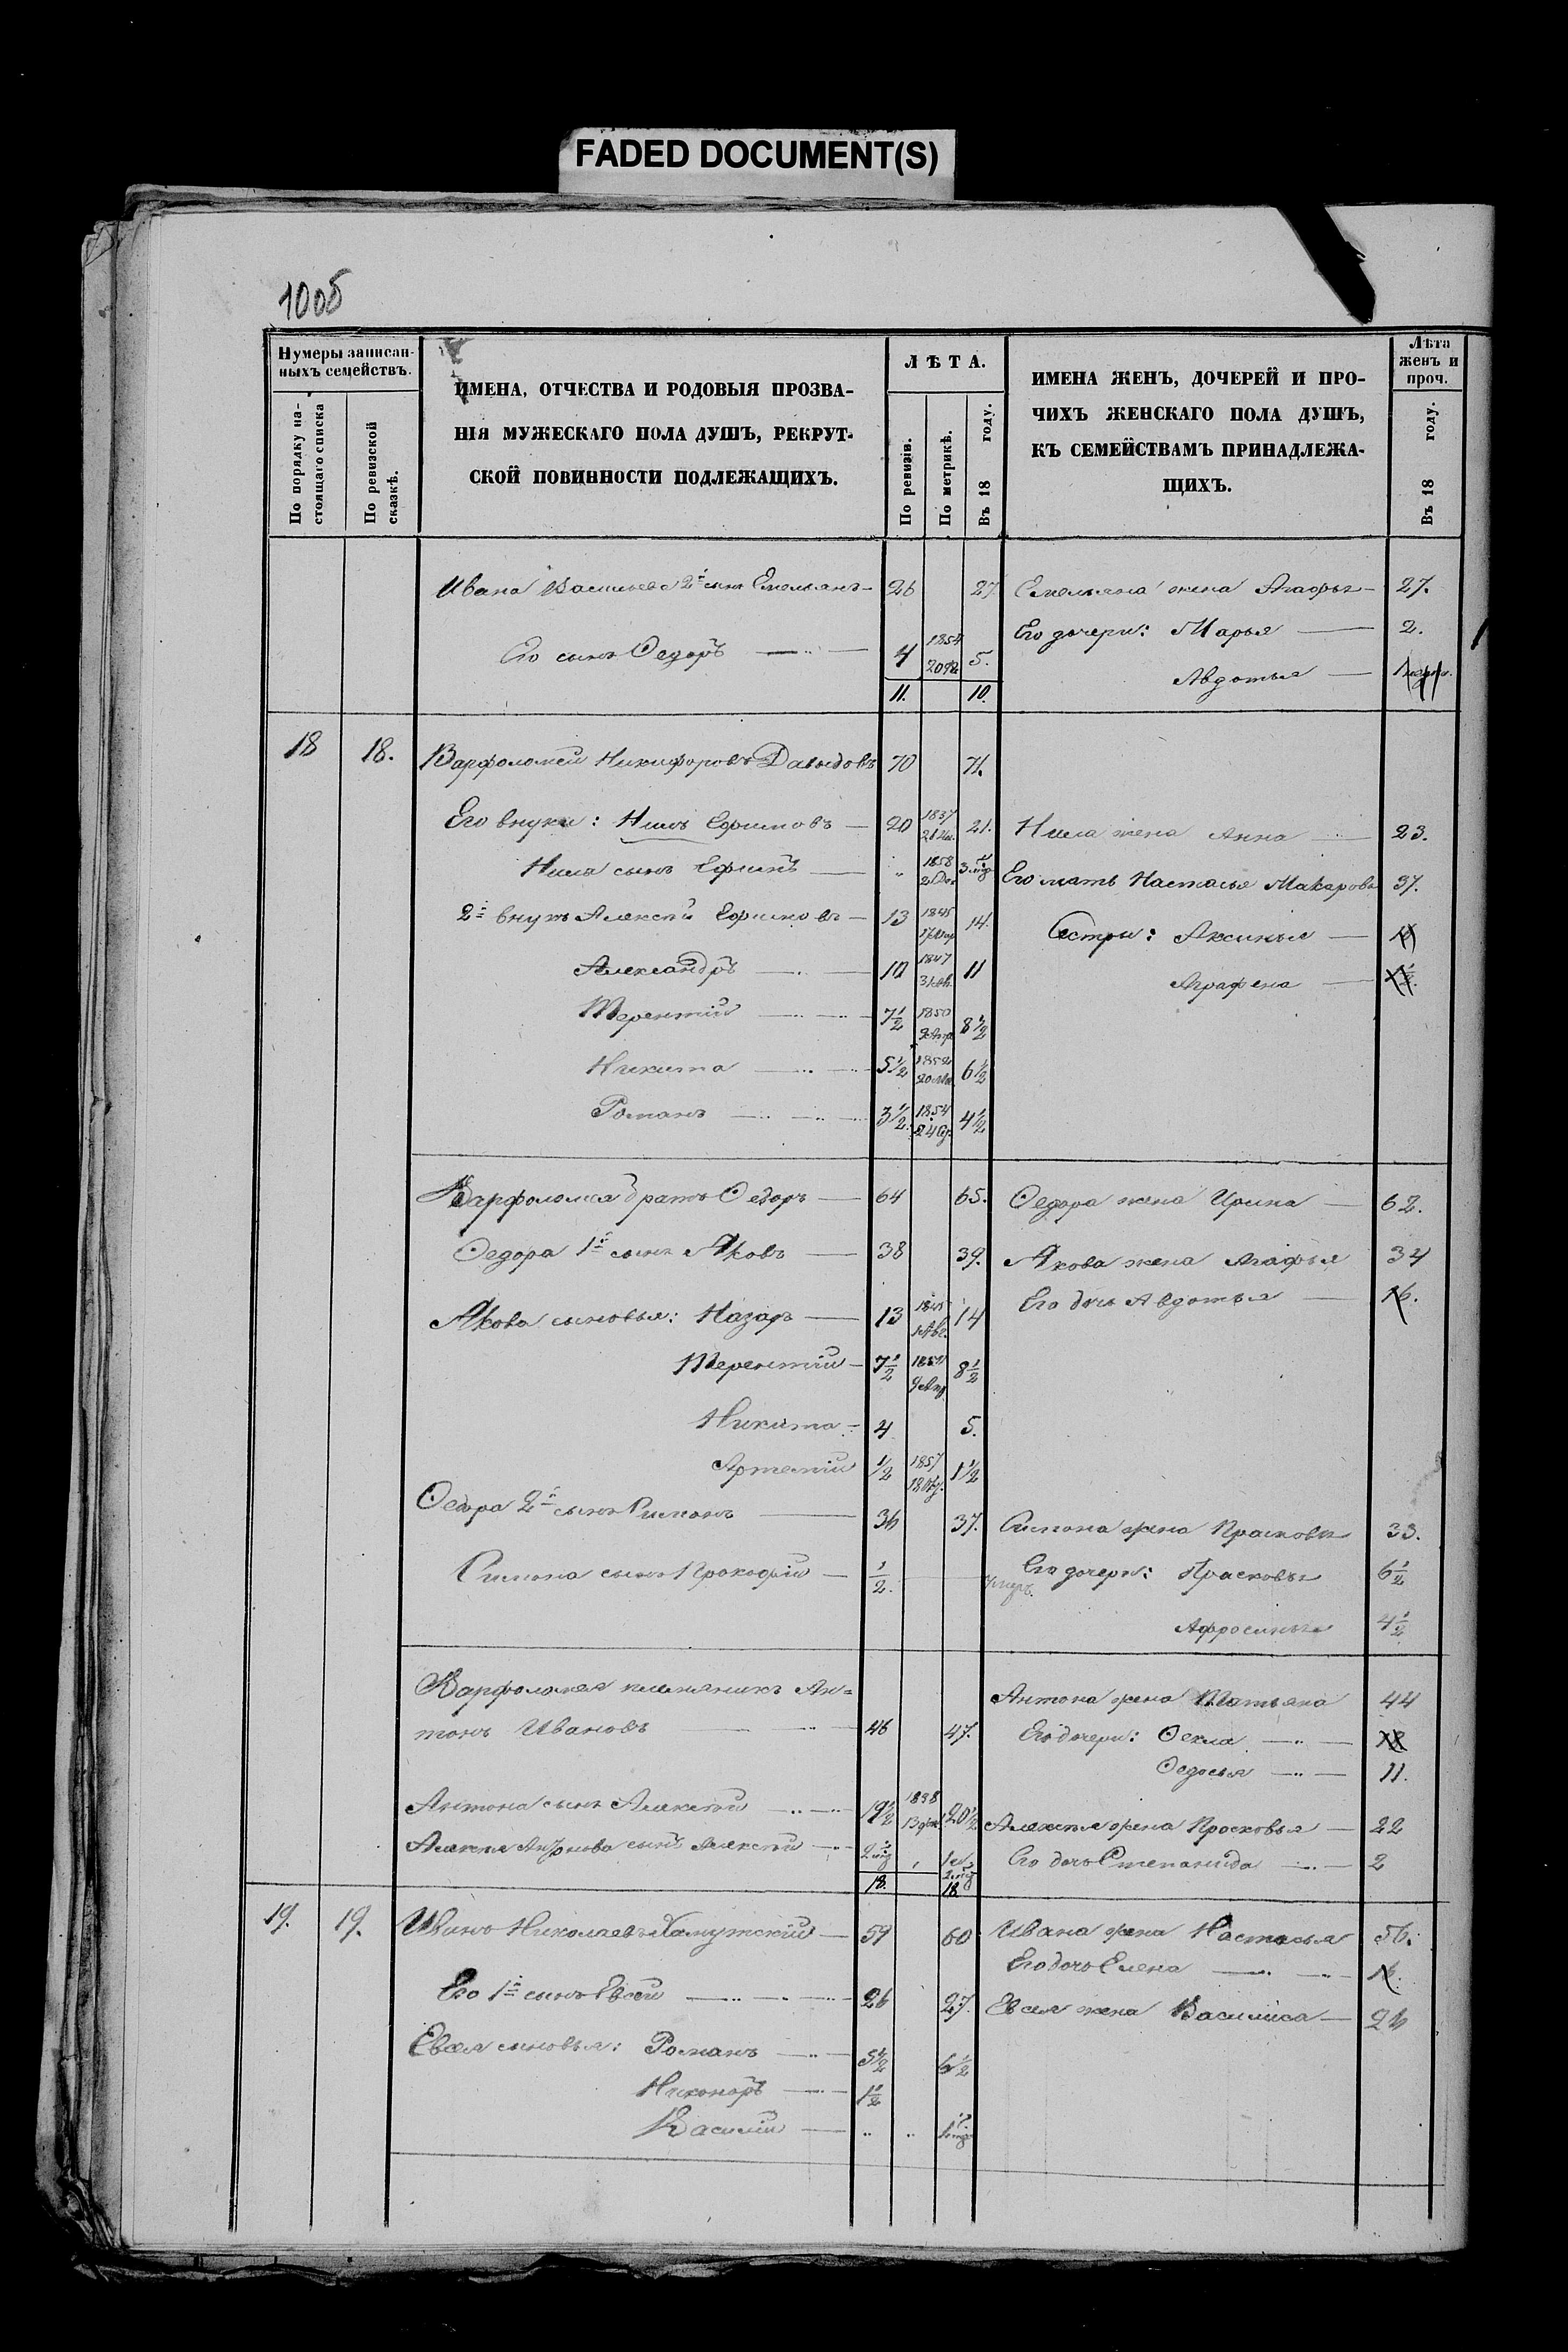 FADED DOCUMENT(S)
1005
Нумеры записан-
ныхъ семействъ.
По порядку на-
стоящаго списка
По ревизской
сказкѣ.
ИМЕНА, ОТЧЕСТВА И РОДОВЫЯ ПРОЗВА-
НІЯ МУЖЕСКАГО ПОЛА ДУШЪ, РЕКРУТ-
СКОЙ ПОВИННОСТИ ПОДЛЕЖАЩИХЪ.
ЛѢТА.
По ревизіи.
По метрикѣ.
Въ 18 году.
ИМЕНА ЖЕНЪ, ДОЧЕРЕЙ И ПРО-
ЧИХЪ ЖЕНСКАГО ПОЛА ДУШЪ,
КЪ СЕМЕЙСТВАМЪ ПРИНАДЛЕЖА-
ЩИХЪ.
Лѣта
женъ и
проч.
Въ 18 году.
Ивана Васильева 2й сынъ Емельянъ 26 27 Емельяна жена Агафья 27.
Его дочери: Марья 2.
Его сынъ Ѳедоръ 4 1854 5.
Авдотья
11. 10.
18 18. Варфоломей Никифоровъ Давыдовъ 70 71.
Его внуки: Нилъ Ефимовъ 20 1837 21. Нила жена Анна 23.
Нила сынъ Ефимъ " 1858 3 Его мать Настасья Макарова 37.
2й внукъ Алексѣй Ефимовъ 13 1845 14. Сестры: Аксинья
Александръ 10 1847 11 Аграфена
Терентій 7½ 1850 8½
Никита 5½ 1852 6½
Романъ 3½. 1854 4½
Варфоломея братъ Ѳедоръ 64 65. Ѳедора жена Ирина 62.
Ѳедора 1й сынъ Яковъ 38 39. Якова жена Агафья 34
Его дочь Авдотья 16.
Якова сыновья: Назаръ 13 1845 14
Терентій 7½ 1850 8½
Никита 4 5.
Артемій ½ 1857 1½
Ѳедора 2й сынъ Симонъ 36 37. Симона жена Прасковья 33.
Симона сынъ Прокофій ½. умеръ. Его дочери: Прасковья 6½
Афросинья 4½
Варфоломея племянникъ Ан=
тонъ Ивановъ 46 47.
Антона жена Татьяна 44
Его дочери: Ѳекла
Ѳедосья 11.
Антона сынъ Алексѣй 19½ 1838 20½ Алексѣя жена Прасковья 22
Алексѣя Антонова сынъ Алексѣй Его дочь Степанида 2
18. 18
19. 19. Иванъ Николаевъ 59 60 Ивана жена Настасья 56.
Его дочь Елена 16.
Его 1й сынъ Евсей 26 27. Евсея жена Василиса 26
Евсея сыновья: Романъ 5½ 6½
Никоноръ 1½
Василій " "